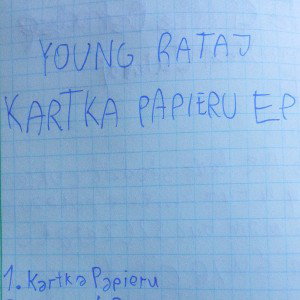 YOUNG RATAJ
KARTKA PAPIERU EP
1. Kartka Papieru